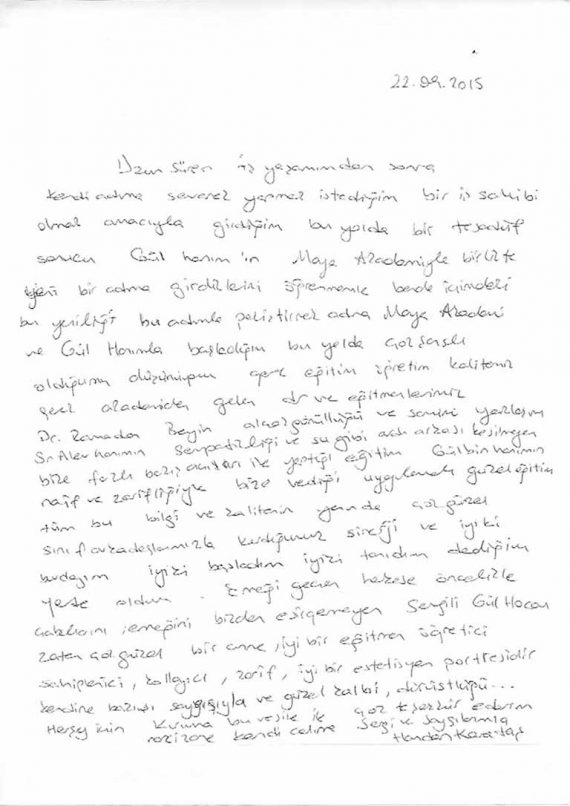 22.09.2015
Uzun süren iş yaşamımdan sonra
kendi adıma severek yapmak istediğim bir iş sahibi
olmak amacıyla girdiğim bu yolda bir tesadüf
sonucu Gül hanım'ın Maya Akademiyle birlikte
yeni bir adıma girdiklerini öğrenmemle bende içimdeki
bu yeniliği bu adımla pekiştirmek adına Maya Akademi
ve Gül Hanımla başladığım bu yolda çok şanslı
olduğumu düşünüyorum gerek eğitim öğretim kalitemiz
gerek akademiden gelen dr ve eğitmenlerimiz
Dr. Ramadan Beyin alçak gönüllüğü ve samimi yaklaşımı
hanımın sempatikliği ve su gibi ardı arkası kesilmeyen
bize farklı bakış açıları ile yaptığı eğitim Gülbin hanımın
naif ve zarifliğiyle bize verdiği uygulamalı güzel eğitim
tüm bu bilgi ve kalitenin yanında çok güzel
sınıf arkadaşlarımızla kurduğumuz sinerji ve iyiki
burdayım iyiki başladım iyiki tanıdım dediğim
yerde oldum. Emeği geçen herkese öncelikle
çabalarını, emeğini bizden esirgemeyen Sevgili Gül Hocam
zaten çok güzel bir anne, iyi bir eğitmen öğretici
sahiplenici, kollayıcı, zarif, iyi bir estetisyen portresidir
kendine has saygısıyla ve güzel kalbi, dürüstlüğü...
Herşey için kuruma bu vesile ile çok teşekkür ederim
kendi adıma Sevgi ve Saygılarımla
Handan Karataş